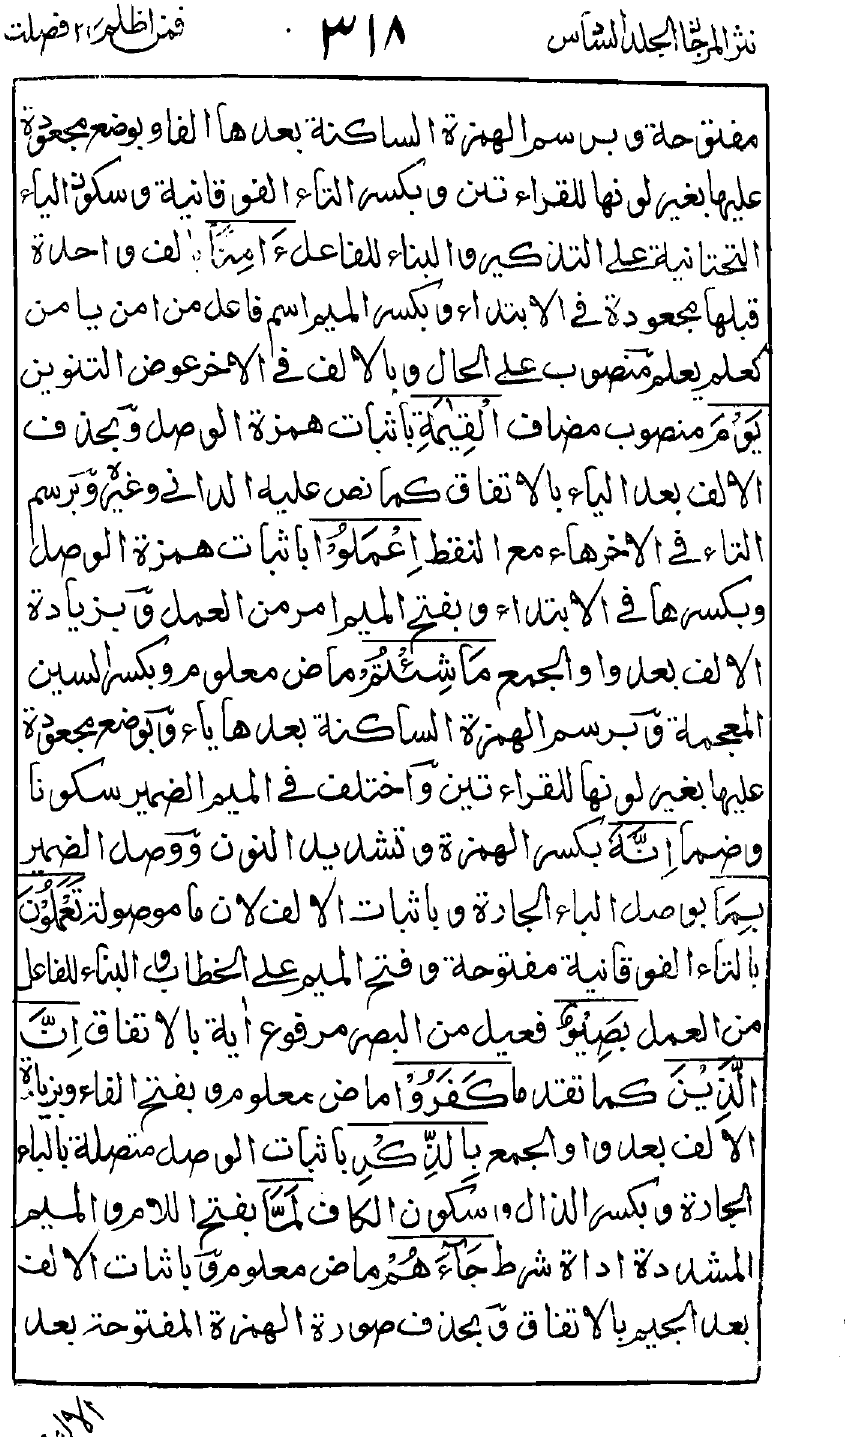 نثر المرجان الجلد السادس
٣١٨
فمن اظلم ٢٤ فصلت
مفتوحة وبرسم الهمزة الساكنة بعدها الفا وبوضع مجعودة
عليها بغير لونها للقراءتين وبكسر التاء الفوقانية وسكون الياء
التحتانية على التذكير والبناء للفاعل ءَامِنًا بالف واحدة
قبلها مجعودة في الابتداء وبكسر الميم اسم فاعل من امن يامن
كعلم يعلم منصوب على الحال وبالالف في الاخر عوض التنوين
يَوْمَ منصوب مضاف الْقِيٰمَةِ باثبات همزة الوصل وبحذف
الالف بعد الياء بالاتفاق كما نص عليه الداني وغيره وبرسم
التاء في الاخر هاء مع النقط اِعْمَلُوْا باثبات همزة الوصل
وبكسرها في الابتداء وبفتح الميم امر من العمل وبزيادة
الالف بعد واو الجمع مَا شِئْتُمْ ماض معلوم وبكسر الشين
المعجمة وبرسم الهمزة الساكنة بعدها ياء وبوضع مجعودة
عليها بغير لونها للقراءتين واختلف في الميم الضمير سكونا
وضما اِنَّهٗ بكسر الهمزة وتشديد النون ووصل الضمير
بِمَا بوصل الباء الجارة وباثبات الالف لان ما موصولة تَعْمَلُوْنَ
بالتاء الفوقانية مفتوحة وفتح الميم على الخطاب والبناء للفاعل
من العمل بَصِيْرٌ فعيل من البصر مرفوع اٰية بالاتفاق اِنَّ
الَّذِيْنَ كما تقدم كَفَرُوْا ماض معلوم وبفتح الفاء وبزيادة
الالف بعد واو الجمع بِالذِّكْرِ باثبات الوصل متصلة بالباء
الجارة وبكسر الذال وسكون الكاف لَمَّا بفتح اللام والميم
المشددة اداة شرط جَآءَهُمْ ماض معلوم وباثبات الالف
بعد الجيم بالاتفاق وبحذف صورة الهمزة المفتوحة بعد
الالف